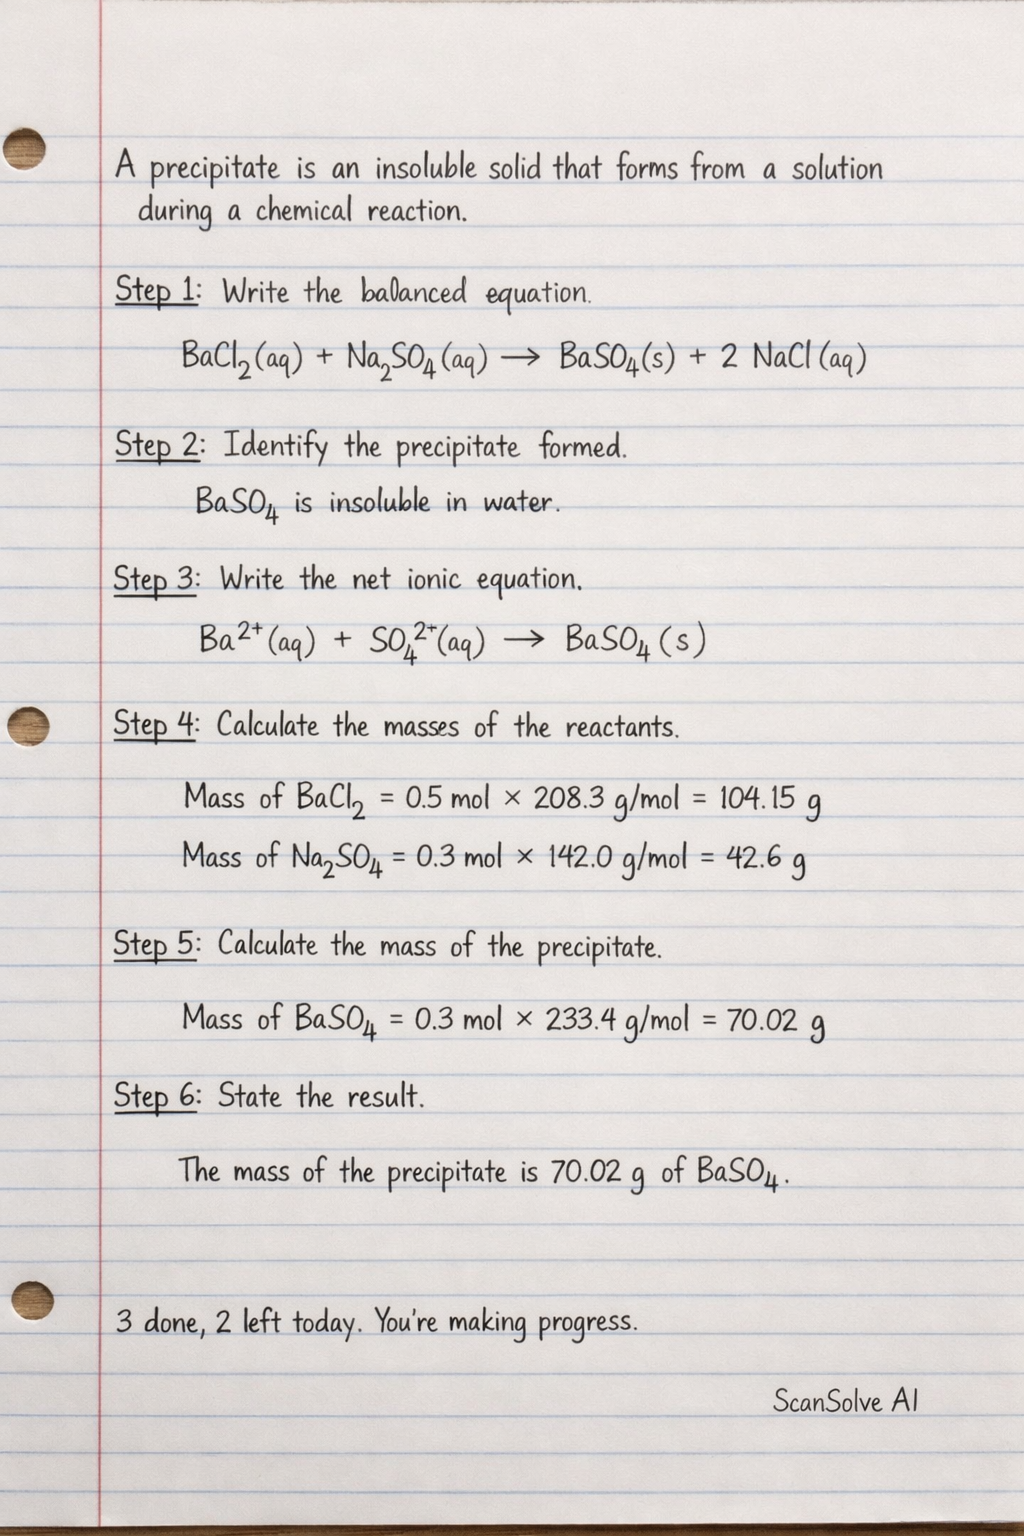 A precipitate is an insoluble solid that forms from a solution
during a chemical reaction.
Step 1: Write the balanced equation.
BaCl₂(aq) + Na₂SO₄(aq) → BaSO₄(s) + 2 NaCl(aq)
Step 2: Identify the precipitate formed.
BaSO₄ is insoluble in water.
Step 3: Write the net ionic equation.
Ba²⁺(aq) + SO₄²⁺(aq) → BaSO₄(s)
Step 4: Calculate the masses of the reactants.
Mass of BaCl₂ = 0.5 mol × 208.3 g/mol = 104.15 g
Mass of Na₂SO₄ = 0.3 mol × 142.0 g/mol = 42.6 g
Step 5: Calculate the mass of the precipitate.
Mass of BaSO₄ = 0.3 mol × 233.4 g/mol = 70.02 g
Step 6: State the result.
The mass of the precipitate is 70.02 g of BaSO₄.
3 done, 2 left today. You're making progress.
ScanSolve AI